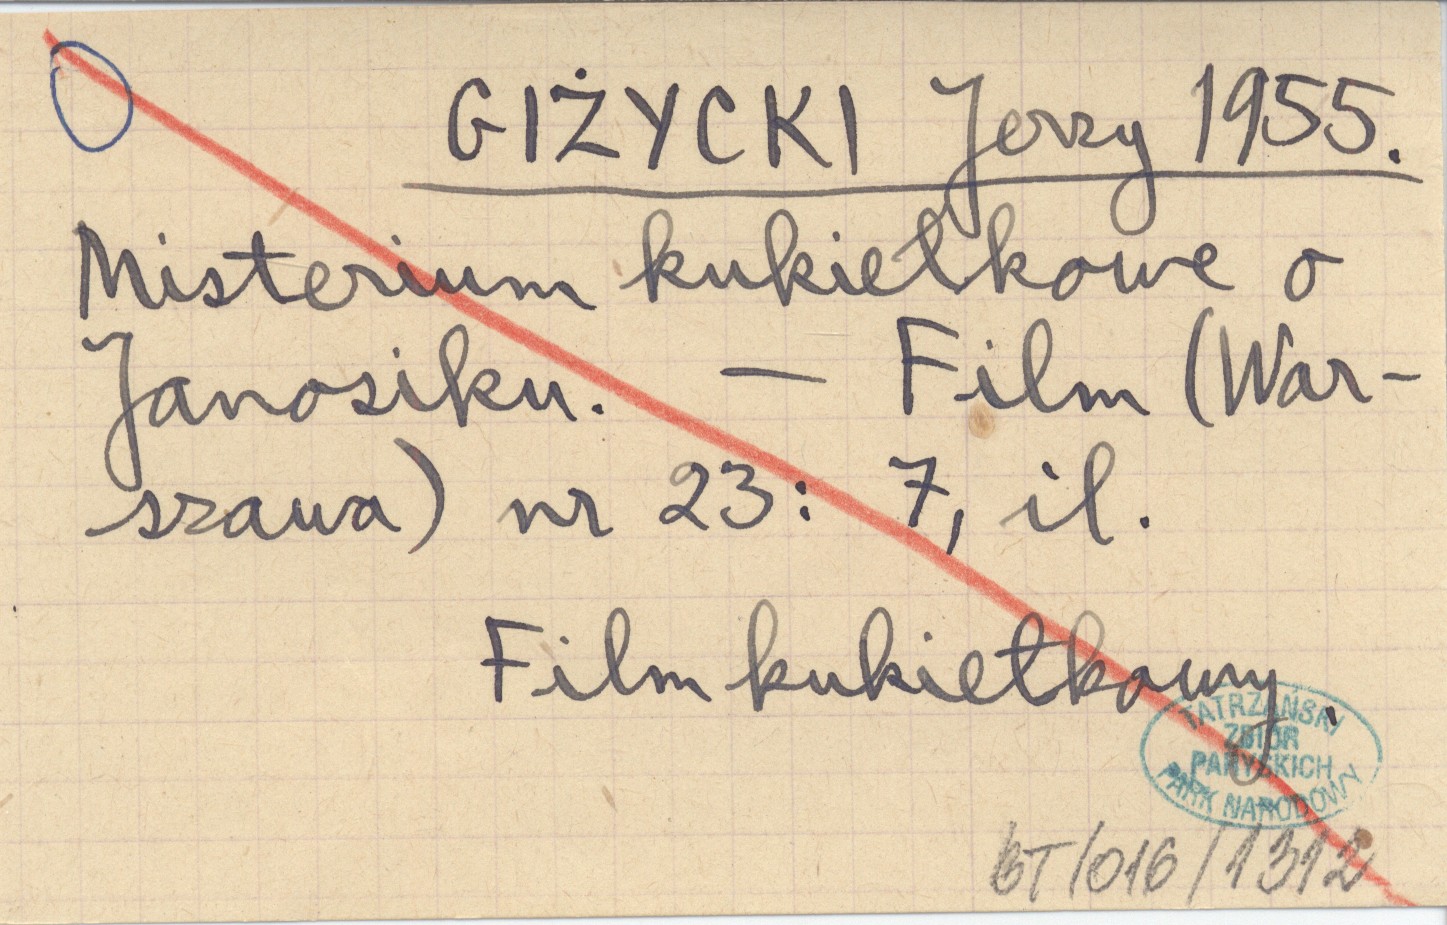 GIŻYCKI Jerzy 1955.
Misterium kukiełkowe o
Janosiku. — Film (War-
szawa) nr 23: 7, il.
Film kukiełkowy.
TATRZAŃSKI
ZBIÓR
PARYSKICH
PARK NARODOWY
BT/016/1312